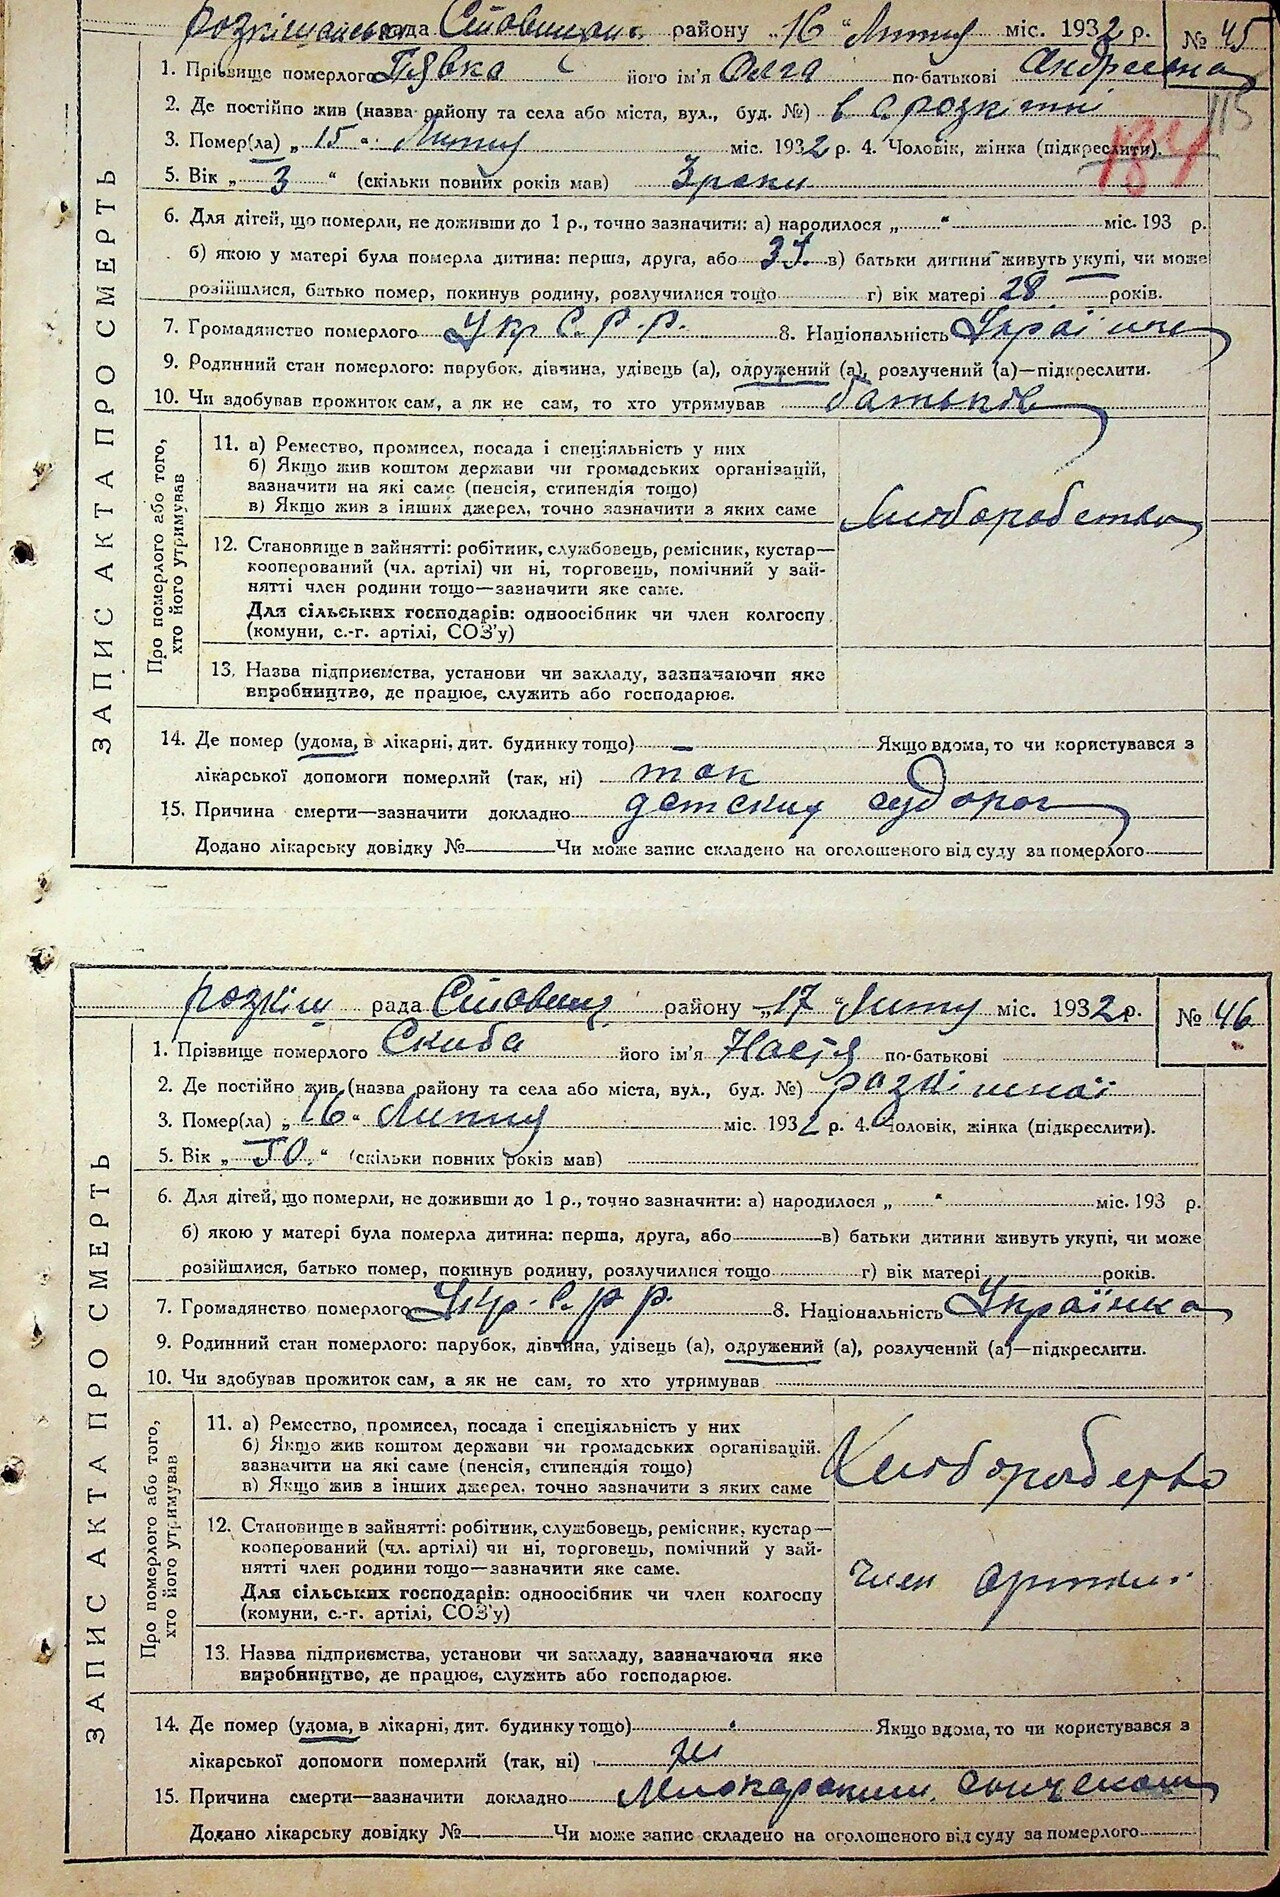 рада району „16“ Лютня міс. 1932 р. № 45
1. Прізвище померлого Пявка його ім'я Олга по-батькові Андреевна
115
2. Де постійно жив (назва району та села або міста, вул., буд. №) в с розкішні
184
3. Помер(ла) „15“ Лютня міс. 1932 р. 4. Чоловік, жінка (підкреслити).
5. Вік „3“ (скільки повних років мав) 3 роки
6. Для дітей, що померли, не доживши до 1 р., точно зазначити: а) народилося „ “ міс. 193 р.
б) якою у матері була померла дитина: перша, друга, або в) батьки дитини живуть укупі, чи може
розійшлися, батько помер, покинув родину, розлучилися тощо г) вік матері 28 років.
7. Громадянство померлого Укр С.Р.Р. 8. Національність
9. Родинний стан померлого: парубок, дівчина, удівець (а), одружений (а), розлучений (а)—підкреслити.
10. Чи здобував прожиток сам, а як не сам, то хто утримував батьків
ЗАПИС АКТА ПРО СМЕРТЬ
Про померлого або того, хто його утримував
11. а) Ремество, промисел, посада і спеціяльність у них
б) Якщо жив коштом держави чи громадських організацій,
зазначити на які саме (пенсія, стипендія тощо)
в) Якщо жив з інших джерел, точно зазначити з яких саме
12. Становище в зайнятті: робітник, службовець, ремісник, кустар—
кооперований (чл. артілі) чи ні, торговець, помічний у зай-
нятті член родини тощо—зазначити яке саме.
Для сільських господарів: одноосібник чи член колгоспу
(комуни, с.-г. артілі, СОЗ'у)
13. Назва підприємства, установи чи закладу, зазначаючи яке
виробництво, де працює, служить або господарює.
14. Де помер (удома, в лікарні, дит. будинку тощо) — Якщо вдома, то чи користувався з
лікарської допомоги померлий (так, ні) так
15. Причина смерти—зазначити докладно детских судорог
Додано лікарську довідку № Чи може запис складено на оголошеного від суду за померлого
розкіш рада району „17“ Лютня міс. 1932 р. № 46
1. Прізвище померлого Скиба його ім'я Настя по-батькові
2. Де постійно жив (назва району та села або міста, вул., буд. №)
3. Помер(ла) „16“ Лютня міс. 1932 р. 4. Чоловік, жінка (підкреслити).
5. Вік „50“ (скільки повних років мав)
6. Для дітей, що померли, не доживши до 1 р., точно зазначити: а) народилося „ “ міс. 193 р.
б) якою у матері була померла дитина: перша, друга, або в) батьки дитини живуть укупі, чи може
розійшлися, батько помер, покинув родину, розлучилися тощо г) вік матері років.
7. Громадянство померлого Укр. С. Р Р. 8. Національність Українка
9. Родинний стан померлого: парубок, дівчина, удівець (а), одружений (а), розлучений (а)—підкреслити.
10. Чи здобував прожиток сам, а як не сам, то хто утримував
ЗАПИС АКТА ПРО СМЕРТЬ
Про померлого або того, хто його утримував
11. а) Ремество, промисел, посада і спеціяльність у них
б) Якщо жив коштом держави чи громадських організацій.
зазначити на які саме (пенсія, стипендія тощо)
в) Якщо жив в інших джерел, точно зазначити з яких саме
Хлеборобство
12. Становище в зайнятті: робітник, службовець, ремісник, кустар—
кооперований (чл. артілі) чи ні, торговець, помічний у зай-
нятті член родини тощо—зазначити яке саме.
Для сільських господарів: одноосібник чи член колгоспу
(комуни, с.-г. артілі, СОЗ'у)
член артили
13. Назва підприємства, установи чи закладу, зазначаючи яке
виробництво, де працює, служить або господарює.
14. Де помер (удома, в лікарні, дит. будинку тощо) Якщо вдома, то чи користувався з
лікарської допомоги померлий (так, ні) ні
15. Причина смерти—зазначити докладно
Додано лікарську довідку № Чи може запис складено на оголошеного від суду за померлого